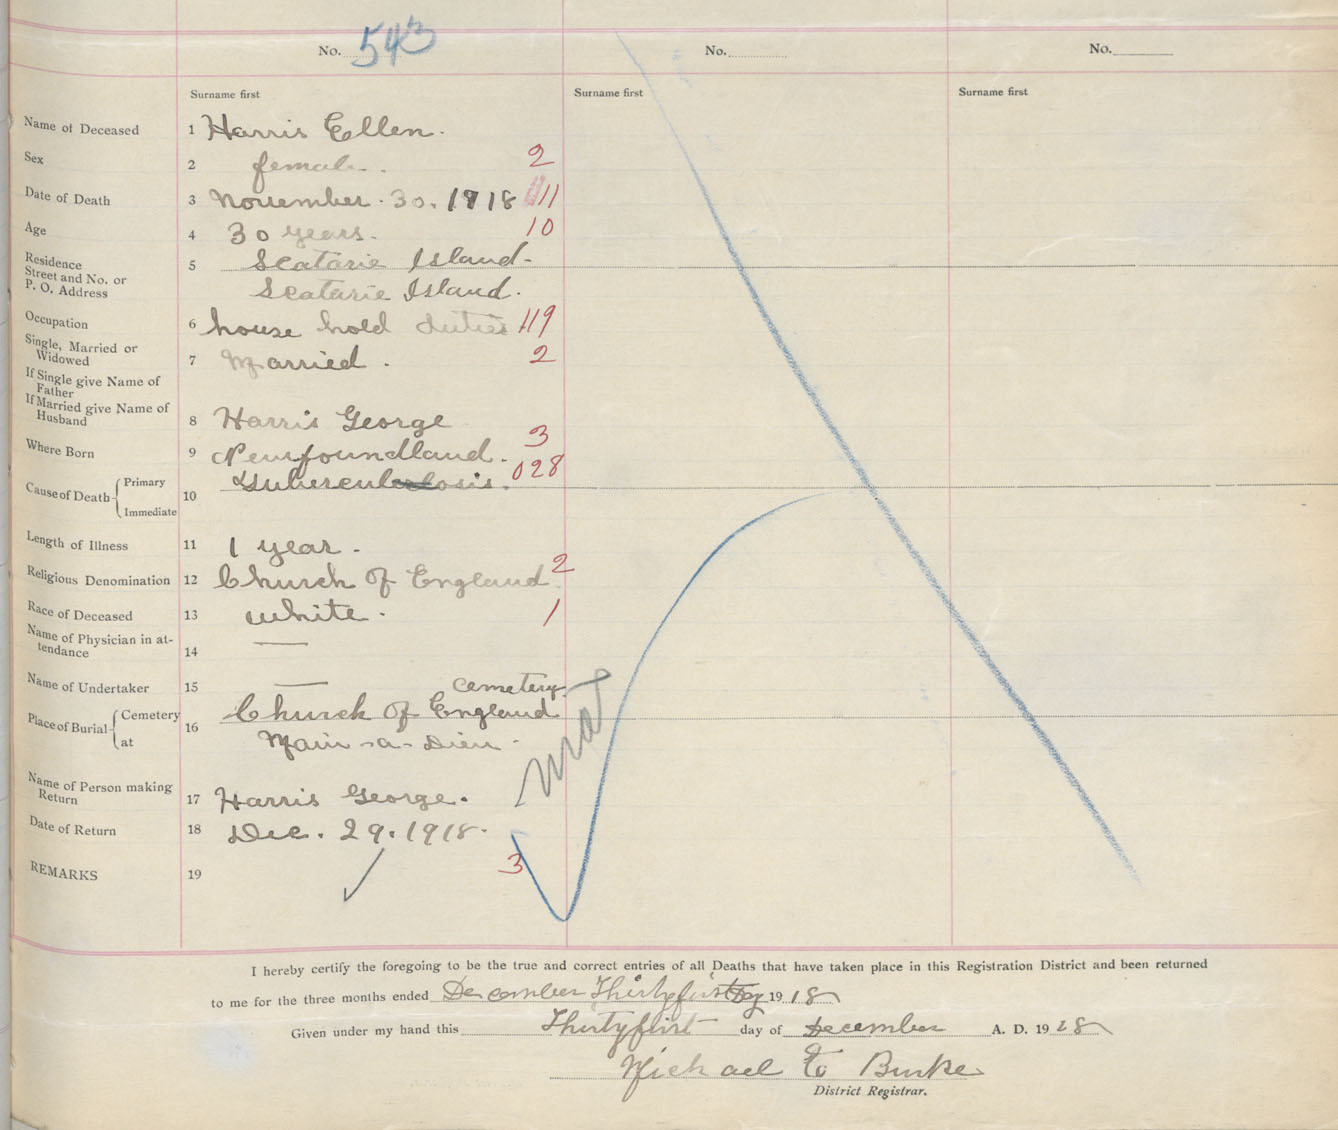 No. 543 No. No.
Surname first Surname first Surname first
Name of Deceased 1 Harris Ellen.
Sex 2 female. 2
Date of Death 3 November. 30. 1918 11
Age 4 30 years. 10
Residence
Street and No. or
P. O. Address 5 Scatarie Island.
Scatarie Island.
Occupation 6 house hold duties 119
Single, Married or
Widowed 7 Married. 2
If Single give Name of
Father
If Married give Name of
Husband 8 Harris George
Where Born 9 Newfoundland. 3
Cause of Death Primary Tuberculosis. 028
Immediate 10
Length of Illness 11 1 year.
Religious Denomination 12 Church of England 2
Race of Deceased 13 white. 1
Name of Physician in at-
tendance 14 —
Name of Undertaker 15 —
cemetery
Place of Burial Cemetery 16 Church of England
at Main-a-Dieu.
Name of Person making
Return 17 Harris George.
Date of Return 18 Dec. 29. 1918.
REMARKS 19 3
I hereby certify the foregoing to be the true and correct entries of all Deaths that have taken place in this Registration District and been returned
to me for the three months ended December Thirtyfirst 1918
Given under my hand this Thirtyfirst day of December A. D. 1918
Michael Burke
District Registrar.